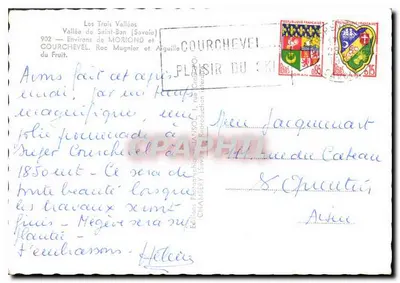 Les Trois Vallées
Vallée de Saint-Bon (Savoie)
Environs de MORIOND et
COURCHEVEL. Roc Mugnier et Aiguille
du Fruit.
COURCHEVEL
PLAISIR DU SKI
0,05
0,15
Avons fait cet après
midi, par un temps
magnifique, une
jolie promenade à
Courchevel
1850 mt - Ce sera de
toute beauté lorsque
les travaux seront
finis - Megève sera sup
plantée -
t'embrassons. Hélène
Jacquemart
rue du Cateau
St Quentin
Aisne